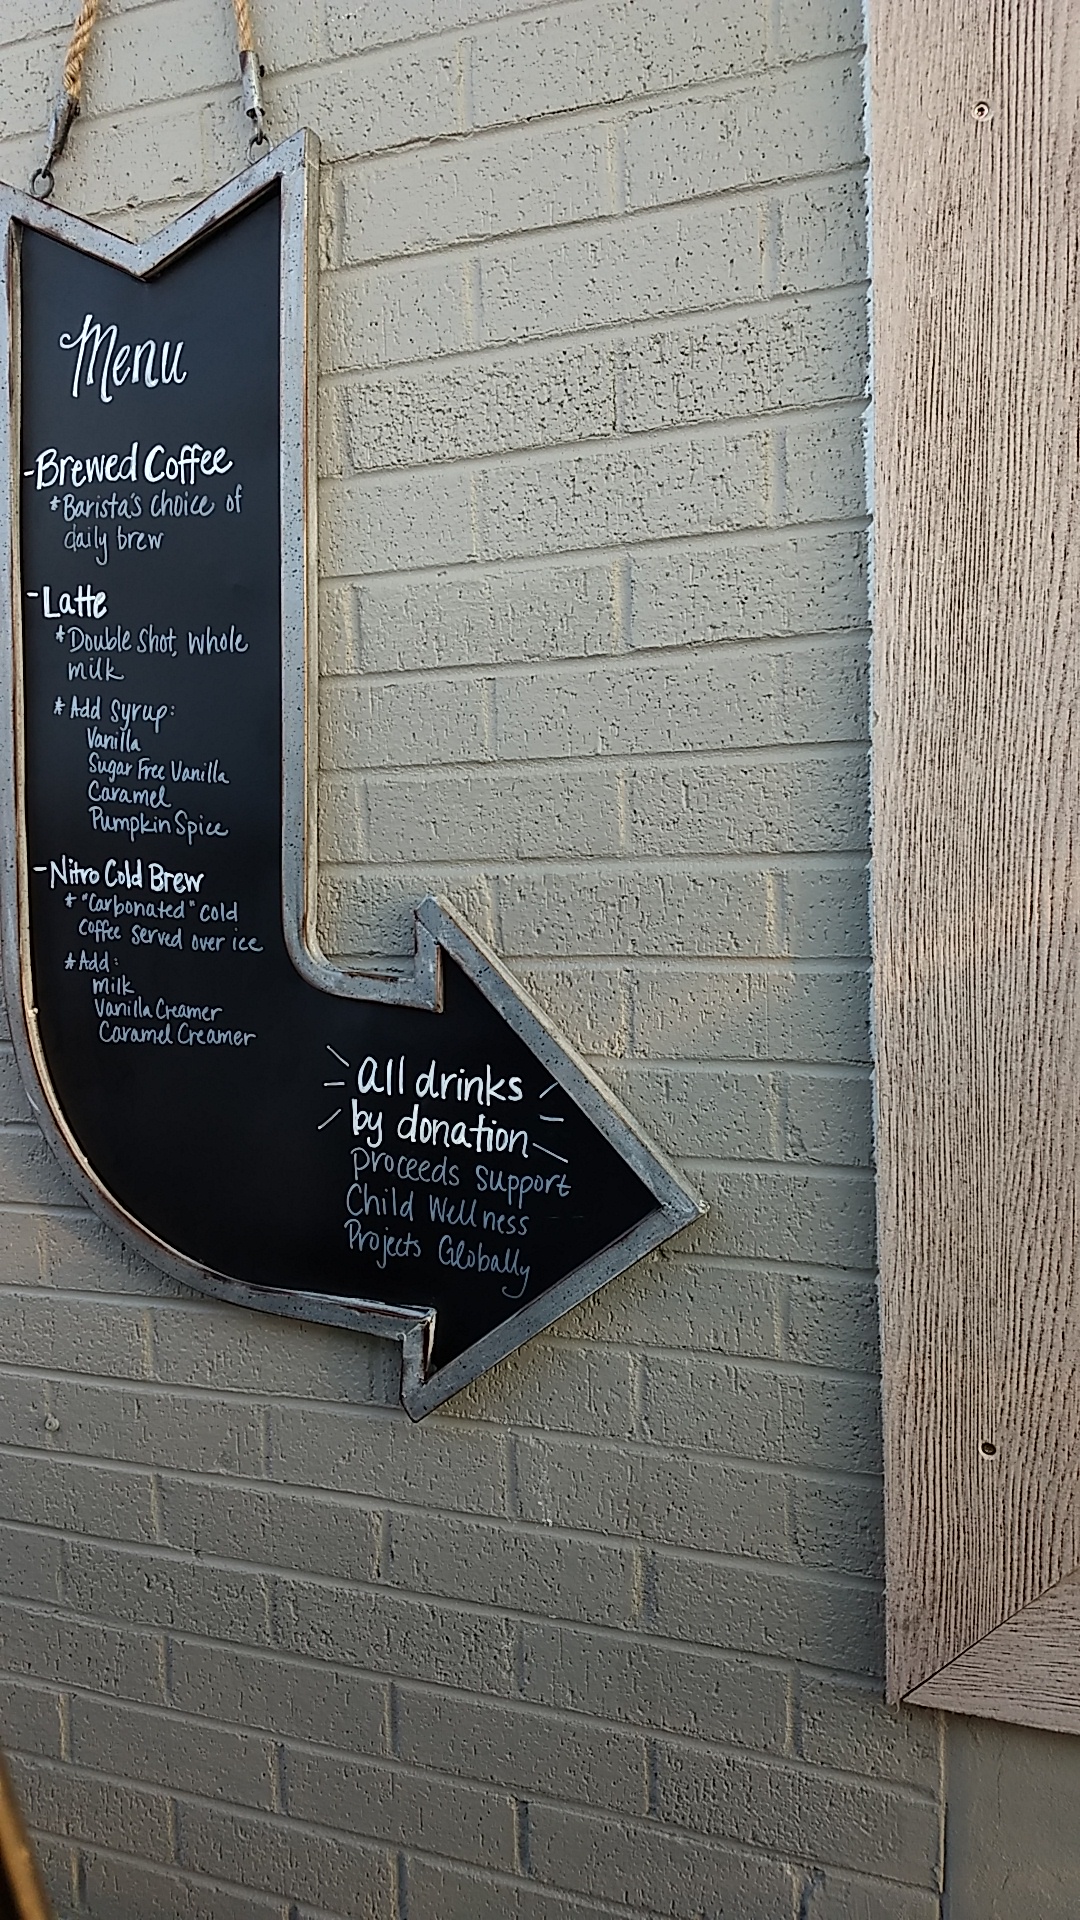 Menu
-Brewed Coffee
*Barista's choice of
daily brew
-Latte
*Double shot, whole
milk
*Add syrup:
Vanilla
Sugar Free Vanilla
Caramel
Pumpkin Spice
-Nitro Cold Brew
*"Carbonated" cold
coffee served over ice
*Add:
milk
Vanilla Creamer
Caramel Creamer
All drinks
by donation
Proceeds support
Child Wellness
Projects Globally